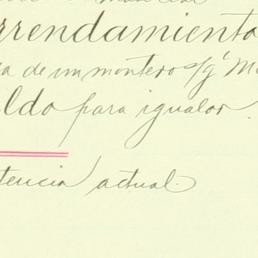 rrendamiento
a de un montero s/g' M
ldo para igualar
tencia actual